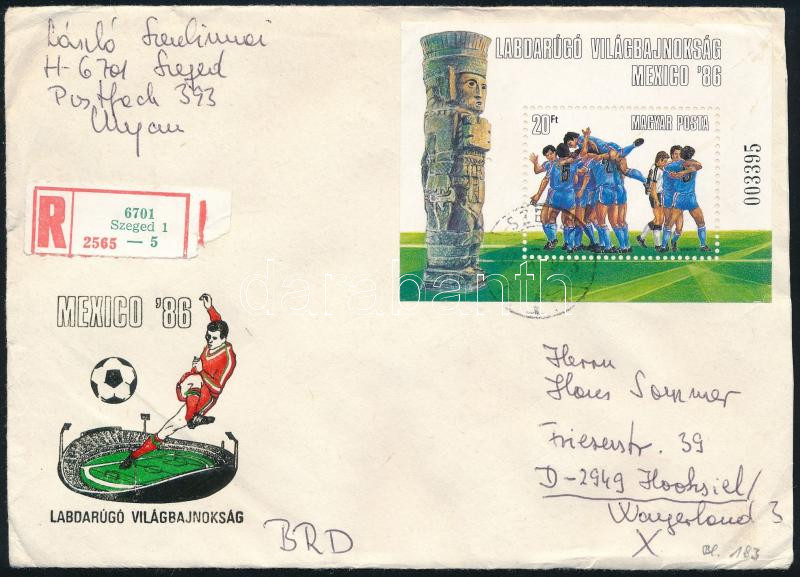 László
H-6701 Szeged
Postfach 393
Ungarn
LABDARÚGÓ VILÁGBAJNOKSÁG
MEXICO '86
20Ft
MAGYAR POSTA
003395
R
6701
Szeged 1
2565 — 5
MEXICO '86
LABDARÚGÓ VILÁGBAJNOKSÁG
BRD
Herrn
Hans Sommer
Friesenstr. 39
D-2949 Hooksiel/
Wangerland 3
X
Bl. 183
darabanth